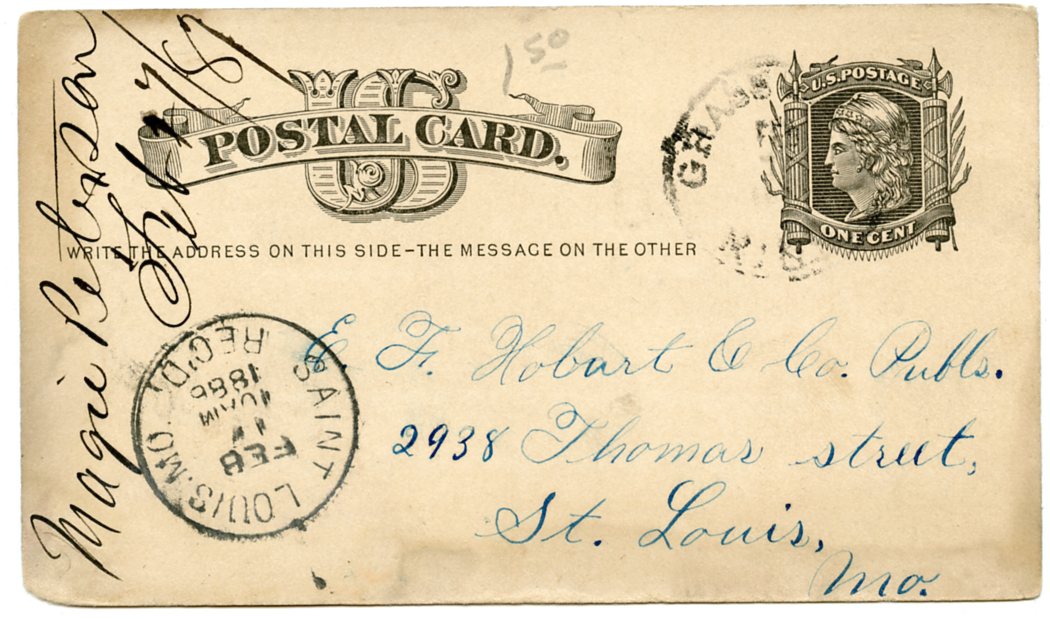 1 50
U.S. POSTAGE
US
POSTAL CARD.
ONE CENT
WRITE THE ADDRESS ON THIS SIDE–THE MESSAGE ON THE OTHER
E. F. Hobart & Co. Publs.
2938 Thomas street,
St. Louis,
Mo.
Magie Peterson
Feb
SAINT LOUIS. MO.
REC'D.
FEB
10 AM
1886
GRASS